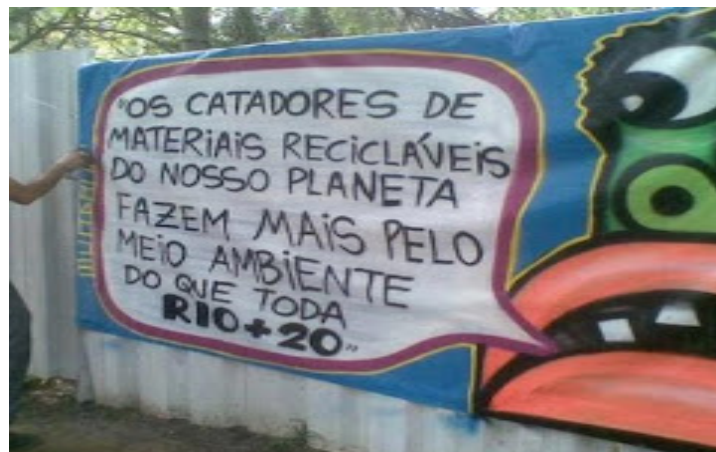 "OS CATADORES DE
MATERIAIS RECICLÁVEIS
DO NOSSO PLANETA
FAZEM MAIS PELO
MEIO AMBIENTE
DO QUE TODA
RIO+20"